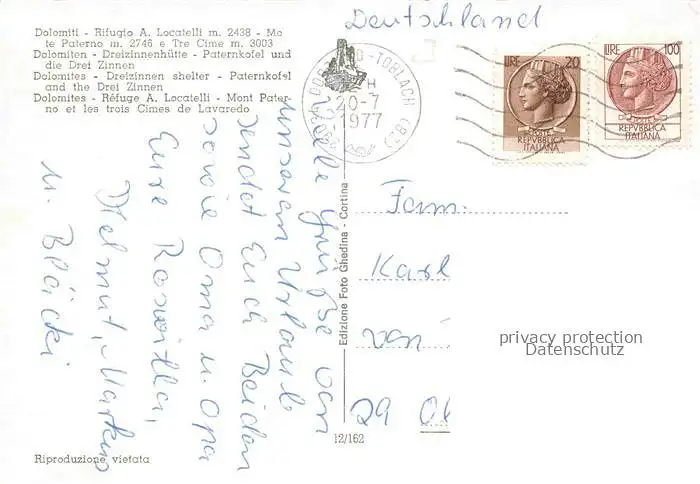 Deutschland
Dolomiti - Rifugio A. Locatelli m. 2438 - Mo
te Paterno m. 2746 e Tre Cime m. 3003
Dolomiten - Dreizinnenhütte - Paternkofel und
die Drei Zinnen
Dolomites - Dreizinnen shelter - Paternkofel
and the Drei Zinnen
Dolomites - Réfuge A. Locatelli - Mont Pater
no et les trois Cimes de Lavaredo
DOBBIACO-TOBLACH (BZ)
20-7
1977
LIRE 20
POSTE
REPVBBLICA
ITALIANA
LIRE 100
POSTE
REPVBBLICA
ITALIANA
Viele Grüße von
unserem Urlaub
sendet Euch Beiden
sowie Oma u. Opa
Eure Roswitha,
Helmut, Markus
u. Bläcki
Edizione Foto Ghedina - Cortina
Fam.
Karl
van
29 Ol
privacy protection
Datenschutz
12/162
Riproduzione vietata